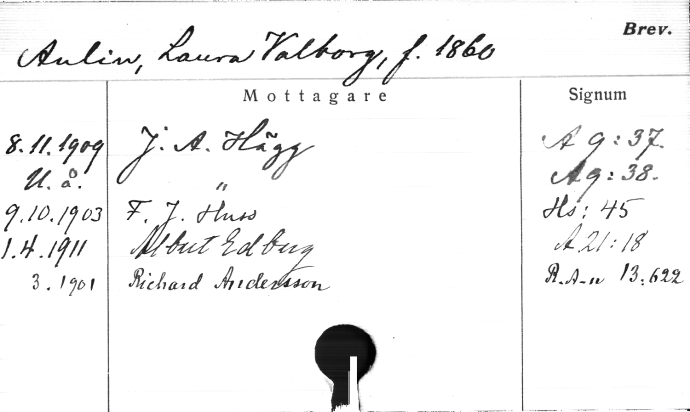 Brev.
Aulin, Laura Valborg, f. 1860
Mottagare Signum
8.11.1909 J. A. Hägg A 9:37.
U. å. " A 9:38.
9.10.1903 F. J. Huss Hs: 45
1.4.1911 Albert Edberg A 21:18
3.1901 Richard Andersson R.A-n 13:622